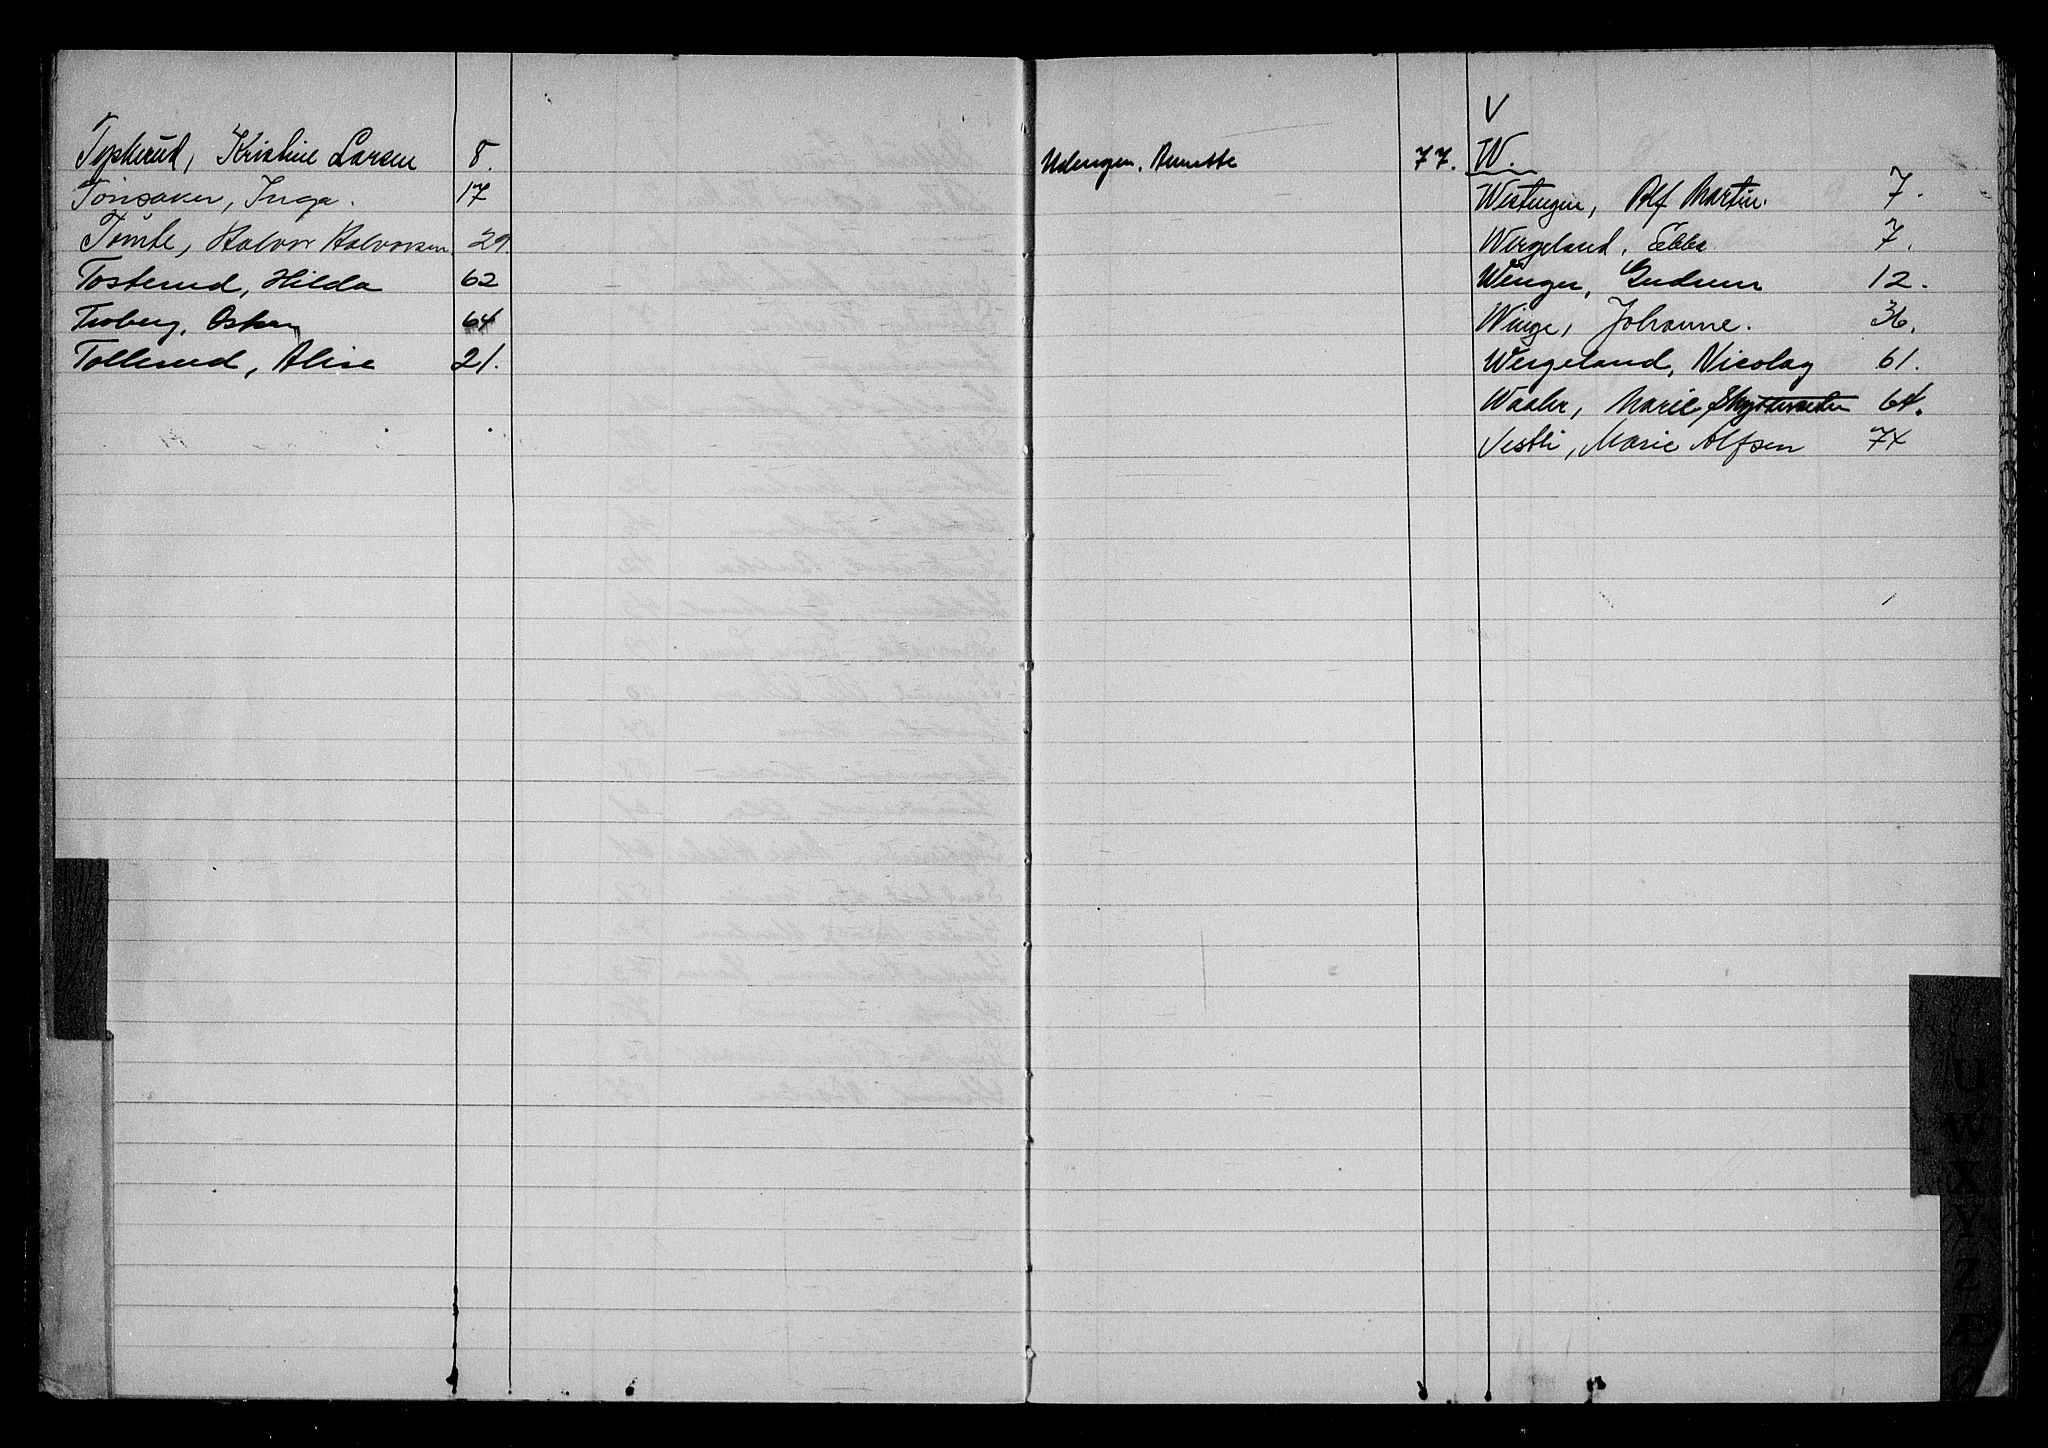 Topherud, Kristine Larsen 8.
Tönsaker, Inga. 17
Tömte, Halvor Halvorsen 29.
Tosterud, Hilda 62
Troberg, Oskar 64
Tollerud, Alise 21.
Udengen, Annette 77.
V
W.
Westengen, Alf Martin. 7.
Wergeland, Ebba 7.
Wenger, Gudrun 12.
Winge, Johanne. 36.
Wergeland, Nicolay 61.
Waaler, Marie Skytterseter 64.
Vestli, Marie Alfsen 74
U
W
X
Y
Z
Æ
Ø